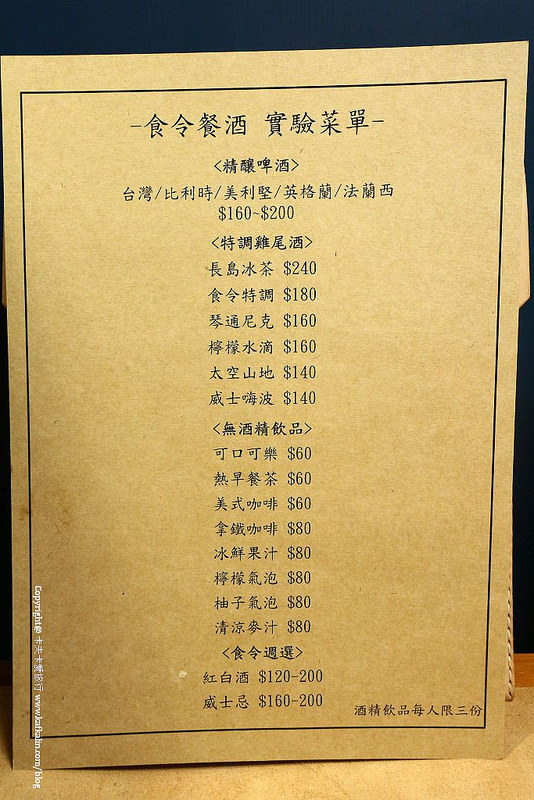 -食令餐酒 實驗菜單-
<精釀啤酒>
台灣/比利時/美利堅/英格蘭/法蘭西
$160~$200
<特調雞尾酒>
長島冰茶 $240
食令特調 $180
琴通尼克 $160
檸檬水滴 $160
太空山地 $140
威士嗨波 $140
<無酒精飲品>
可口可樂 $60
熱早餐茶 $60
美式咖啡 $60
拿鐵咖啡 $80
冰鮮果汁 $80
檸檬氣泡 $80
柚子氣泡 $80
清涼麥汁 $80
<食令週選>
紅白酒 $120-200
威士忌 $160-200
酒精飲品每人限三份
Copyright@ 卡夫卡愛旅行 www.kafkalin.com/blog